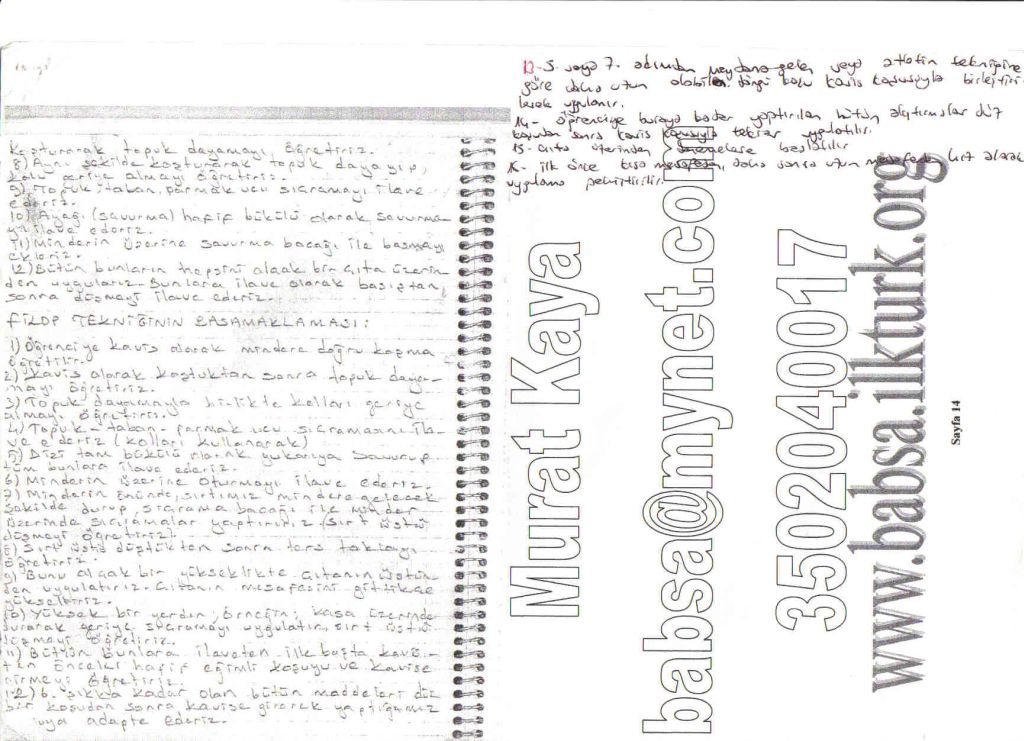 Koşturarak topuk dayamayı öğretiriz.
8) Aynı şekilde koşturarak topuk dayayıp,
kolu geriye almayı öğretiriz.
9) Topuk, taban, parmak ucu sıçramayı ilave
ederiz.
10) Ayağı (savurma) hafif bükülü olarak savurma
yı ilave ederiz.
11) Minderin üzerine savurma bacağı ile basmayı
ekleriz.
12) Bütün bunların hepsini alçak bir çıta üzerin
den uygularız. Bunlara ilave olarak basıştan,
sonra düşmeyi ilave ederiz.
FILOP TEKNİĞİNİN BASAMAKLAMASI:
1) Öğrenciye kavis alarak mindere doğru koşma
öğretilir.
2) Kavis alarak koştuktan sonra topuk daya-
mayı öğretiriz.
3) Topuk dayamayla birlikte kolları geriye
almayı öğretiriz.
4) Topuk - taban - parmak ucu sıçramasını ila-
ve ederiz (kolları kullanarak)
5) Dizi tam bükülü olarak yukarıya savurup
tüm bunlara ilave ederiz.
6) Minderin üzerine oturmayı ilave ederiz.
7) Minderin önünde, sırtımız mindere gelecek
şekilde durup, sıçrama bacağı ile minder
üzerinde sıçramalar yaptırırız (sırt üstü
düşmeyi öğretiriz)
8) Sırt üstü düştükten sonra ters taklayı
öğretiriz.
9) Bunu alçak bir yükseklikte çıtanın üstün-
den uygulatırız. Çıtanın mesafesini gittikçe
yükseltiriz.
10) Yüksek bir yerden, örneğin; kasa üzerinde
durarak geriye sıçramayı uygulatır, sırt üstü
düşmeyi öğretiriz.
11) Bütün bunlara ilaveten ilk başta kavis-
ten önceki hafif eğimli koşuyu ve kavise
girmeyi öğretiriz.
12) 6. şıkka kadar olan bütün maddeleri düz
bir koşudan sonra kavise girerek yaptığımız
adapte ederiz.
13- 5 veya 7. adımdan meydana gelen veya atletin tekniğine
göre daha uzun olabilen düz koşu kavis koşusuyla birleştiri
lerek uygulanır.
14- Öğrenciye buraya kadar yaptırılan bütün alıştırmalar düz
koşudan sonra kavis koşusuyla tekrar uygulatılır.
15- Çıta üzerinden başlatılır
16- İlk önce kısa mesafeden daha sonra uzun mesafeden hız alarak
uygulama pekiştirilir.
Murat Kaya
babsa@mynet.com
3502040017
www.babsa.ilkturk.org
Sayfa 14